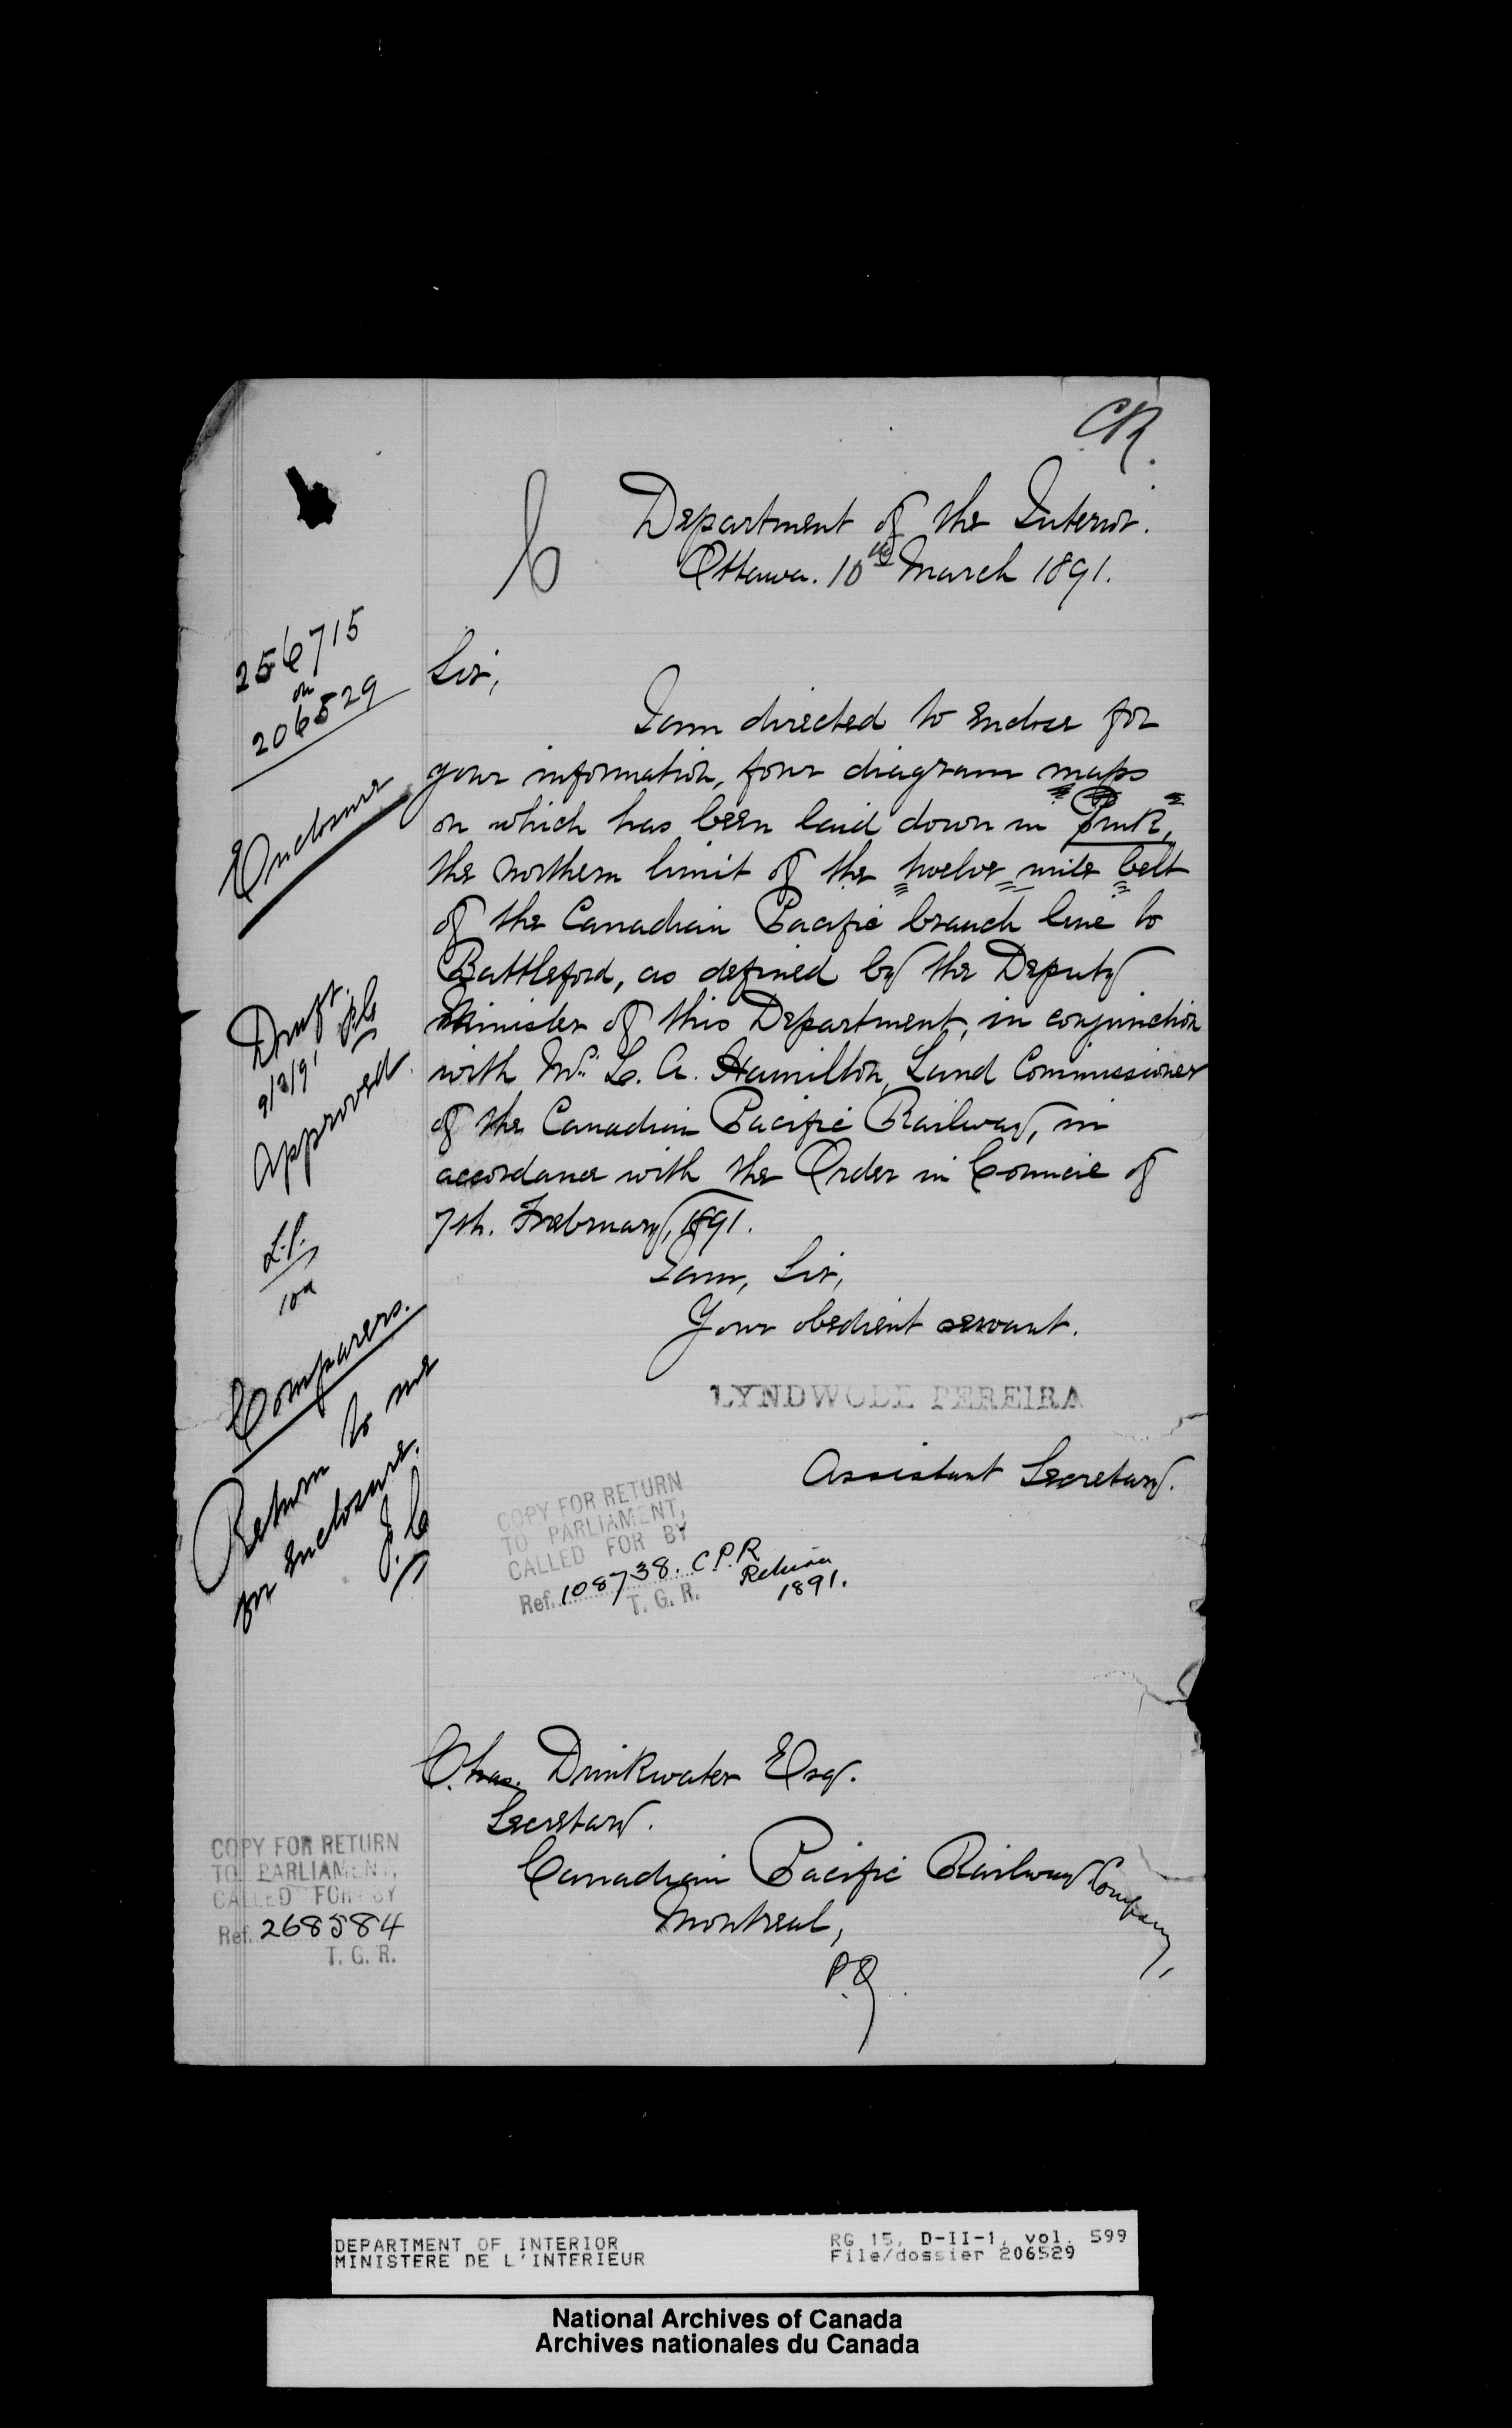 CR.
C
Department of the Interior.
Ottawa. 10th March 1891.
256715
on
206529
Enclosure
Draft.
9/3/91
Approved.
L.P.
10th
Comparers.
Return to me
for enclosure.
J.C
Sir,
I am directed to enclose for
your information, four diagram maps
on which has been laid down in pink,
the northern limit of the twelve mile belt
of the Canadian Pacific branch line to
Battleford, as defined by the Deputy
Minister of this Department, in conjunction
with Mr. L. A. Hamilton, Land Commissioner
of the Canadian Pacific Railway, in
accordance with the Order in Council of
7th. February, 1891.
I am, Sir,
Your obedient servant.
LYNDWODE PEREIRA
Assistant Secretary.
COPY FOR RETURN
TO PARLIAMENT,
CALLED FOR BY
Ref. 108738. C.P.R
Return
1891.
T. G. R.
Chas. Drinkwater Esq.
Secretary.
Canadian Pacific Railway Company,
Montreal,
P.Q.
COPY FOR RETURN
TO PARLIAMENT,
CALLED FOR BY
Ref. 268584
T. G. R.
DEPARTMENT OF INTERIOR
MINISTERE DE L'INTERIEUR
RG 15, D-II-1, vol. 599
File/dossier 206529
National Archives of Canada
Archives nationales du Canada